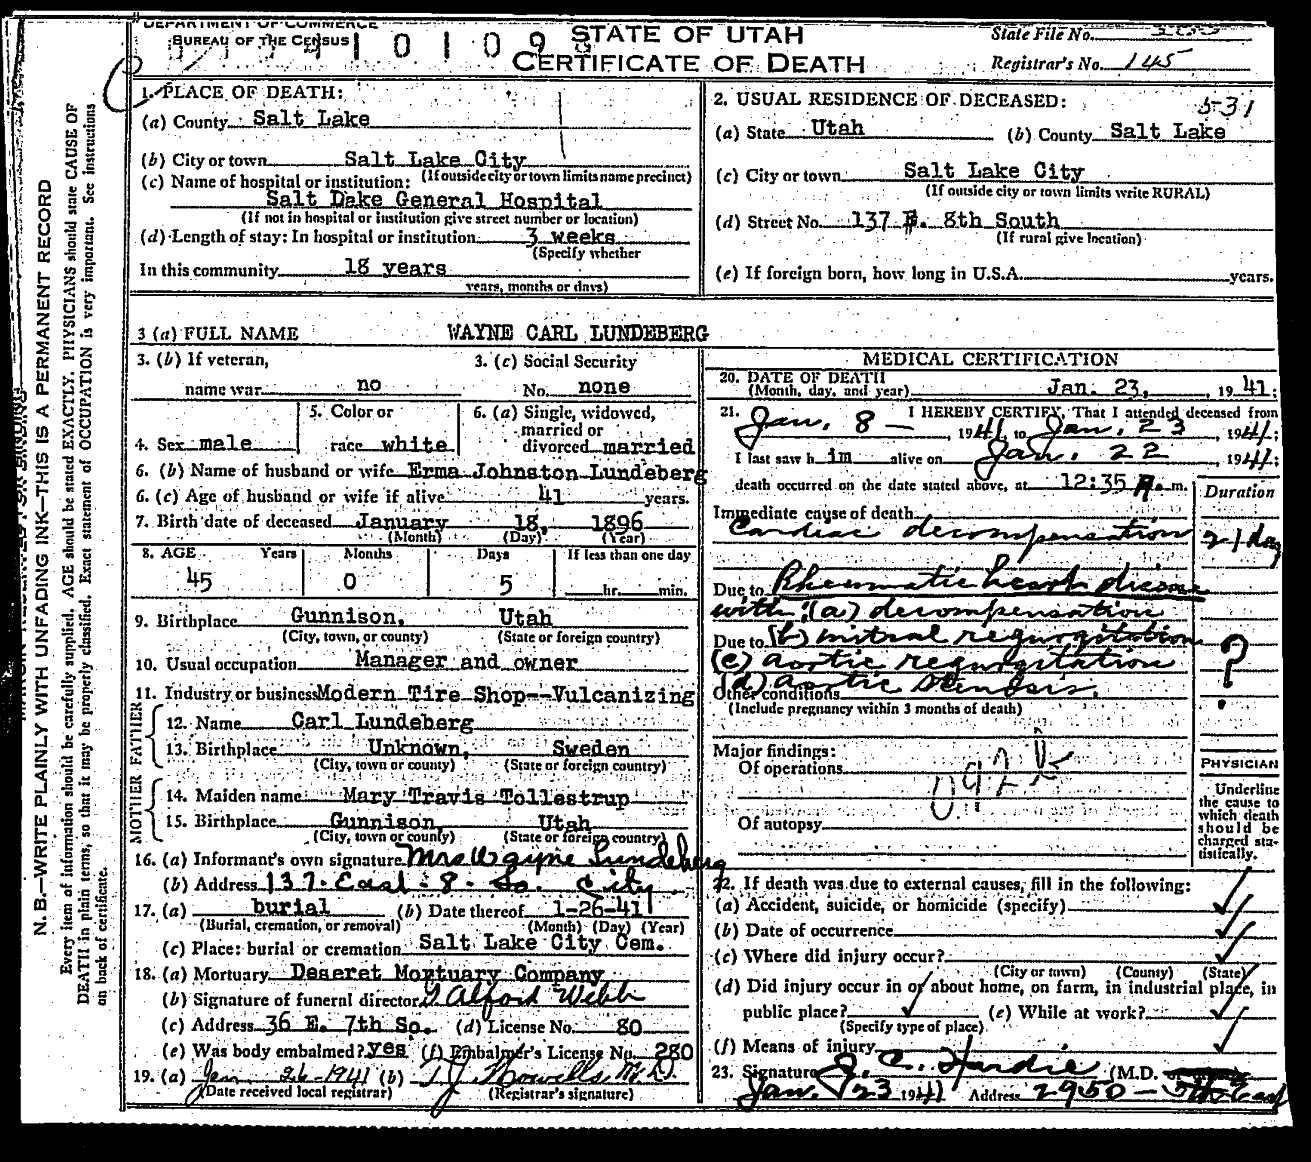 DEPARTMENT OF COMMERCE
BUREAU OF THE CENSUS
STATE OF UTAH
CERTIFICATE OF DEATH
State File No.
Registrar's No. 145
1. PLACE OF DEATH:
(a) County Salt Lake
(b) City or town Salt Lake City
(If outside city or town limits name precinct)
(c) Name of hospital or institution:
Salt Dake General Hospital
(If not in hospital or institution give street number or location)
(d) Length of stay: In hospital or institution 3 weeks
(Specify whether
In this community 18 years
years, months or days)
2. USUAL RESIDENCE OF DECEASED: 531
(a) State Utah (b) County Salt Lake
(c) City or town Salt Lake City
(If outside city or town limits write RURAL)
(d) Street No. 137 E. 8th South
(If rural give location)
(e) If foreign born, how long in U.S.A. years.
3 (a) FULL NAME WAYNE CARL LUNDEBERG
3. (b) If veteran,
name war no
3. (c) Social Security
No. none
4. Sex male
5. Color or
race white
6. (a) Single, widowed,
married or
divorced married
6. (b) Name of husband or wife Erma Johnston Lundeberg
6. (c) Age of husband or wife if alive 41 years.
7. Birth date of deceased January 18, 1896
(Month) (Day) (Year)
8. AGE Years Months Days If less than one day
45 0 5 hr. min.
9. Birthplace Gunnison, Utah
(City, town, or county) (State or foreign country)
10. Usual occupation Manager and owner
11. Industry or business Modern Tire Shop--Vulcanizing
FATHER
12. Name Carl Lundeberg
13. Birthplace Unknown, Sweden
(City, town or county) (State or foreign country)
MOTHER
14. Maiden name Mary Travis Tollestrup
15. Birthplace Gunnison, Utah
(City, town or county) (State or foreign country)
16. (a) Informant's own signature Mrs Wayne Lundeberg
(b) Address 137 East 8 So. City
17. (a) burial (b) Date thereof 1-26-41
(Burial, cremation, or removal) (Month) (Day) (Year)
(c) Place: burial or cremation Salt Lake City Cem.
18. (a) Mortuary Deseret Mortuary Company
(b) Signature of funeral director Alford Webb
(c) Address 36 E. 7th So. (d) License No. 80
(e) Was body embalmed? yes (f) Embalmer's License No. 280
19. (a) Jan. 26-1941 (b) T. J. Howells, M.D.
(Date received local registrar) (Registrar's signature)
MEDICAL CERTIFICATION
20. DATE OF DEATH
(Month, day, and year) Jan. 23, 1941:
21. I HEREBY CERTIFY, That I attended deceased from
Jan. 8 – , 1941 to Jan. 23, 1941;
I last saw him alive on Jan. 22, 1941;
death occurred on the date stated above, at 12:35 A. m.
Duration
Immediate cause of death
Cardiac decompensation 21 day
Due to Rheumatic heart disease
with: (a) decompensation
Due to (b) mitral regurgitation
(c) aortic regurgitation ?
(d) aortic stenosis.
Other conditions
(Include pregnancy within 3 months of death)
Major findings:
Of operations
092
Of autopsy
PHYSICIAN
Underline
the cause to
which death
should be
charged sta-
tistically.
22. If death was due to external causes, fill in the following:
(a) Accident, suicide, or homicide (specify)
(b) Date of occurrence
(c) Where did injury occur?
(City or town) (County) (State)
(d) Did injury occur in or about home, on farm, in industrial place, in
public place? (e) While at work?
(Specify type of place)
(f) Means of injury
23. Signature J. C. Hardie (M.D.
Jan. 23 1941 Address 2950 –
N. B.—WRITE PLAINLY WITH UNFADING INK—THIS IS A PERMANENT RECORD
Every item of information should be carefully supplied. AGE should be stated EXACTLY. PHYSICIANS should state CAUSE OF
DEATH in plain terms, so that it may be properly classified. Exact statement of OCCUPATION is very important. See instructions
on back of certificate.